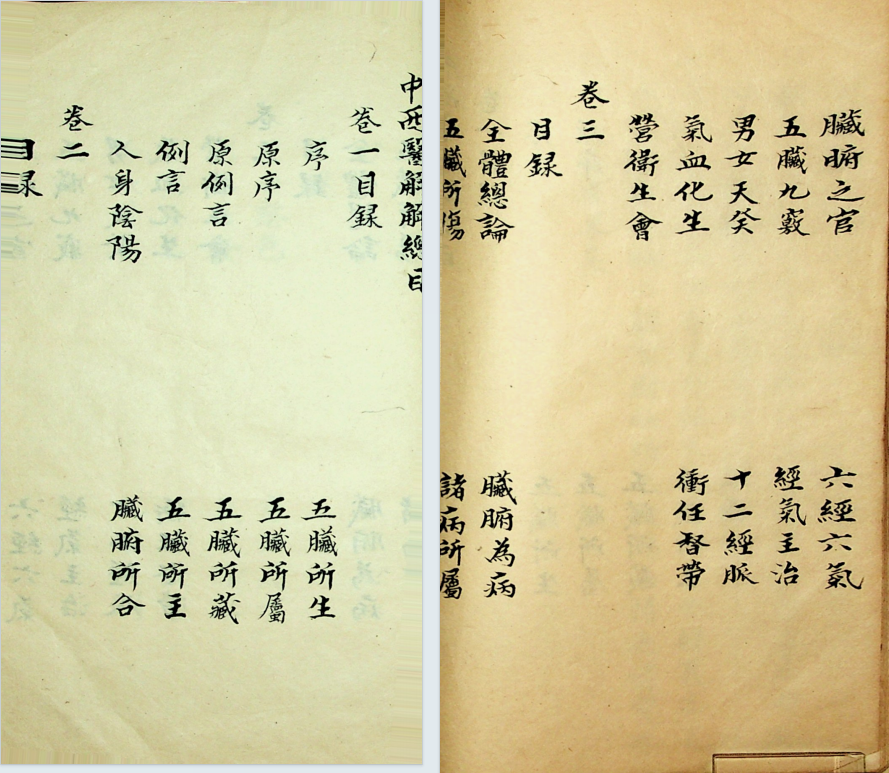 中西醫解解總目
卷一目録
序 五臟所生
原序 五臟所屬
原例言 五臟所藏
例言 五臟所主
人身陰陽 臟腑所合
卷二
目录
臟腑之官 六經六氣
五臟九竅 經氣主治
男女天癸 十二經脈
氣血化生 衝任督帶
營衛生會
卷三
目録
全體總論 臟腑為病
五臟所傷 諸病所屬